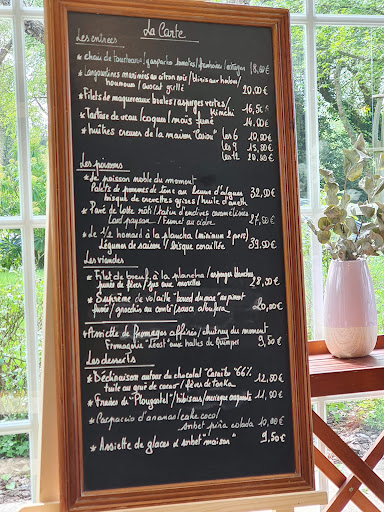 La Carte
Les entrées
* chair de tourteaux / gaspacho tomates / framboises / estragon 18,00€
* Langoustines marinées au citron noir / blinis aux haddock /
houmous / avocat grillé 20,00€
* Filets de maquereaux brulés / asperges vertes / kimchi 16,50€
* Tartare de veau / coques / maïs fumé 14.00€
* huîtres creuses de la maison "Cadou" les 6 10,50€
les 9 15,50€
les 12 20.50€
Les poissons
* Le poisson noble du moment
Palets de pommes de terre au beurre d'algues
bisque de crevettes grises / huile d'aneth 32,50€
* Pavé de lotte rôti / tatin d'endives caramélisées
Lard paysan / Fumet au cidre 27,50€
* de 1/2 homard à la plancha (minimum 2 pers)
Légumes de saison / bisque corsaillée 39.50€
Les viandes
* Filet de boeuf à la plancha / asperges blanches
purée de fèves / jus aux morilles 28,00€
* Suprême de volaille "
fumé / gnocchis au comté / sauce albufera 20,00€
* Assiette de fromages affinés / chutney du moment
Fromagerie "Leost" aux halles de Quimper 9,50€
Les desserts
* Déclinaison autour du chocolat "Caraïbe 66%"
tuile au grué de cacao / fèves de tonka 12,50€
* Fraises de "Plougastel" / hibiscus / meringue 11,50€
* Carpaccio d'ananas / cake coco /
sorbet piña colada 10,00€
* Assiette de glaces & sorbet "maison" 9.50€